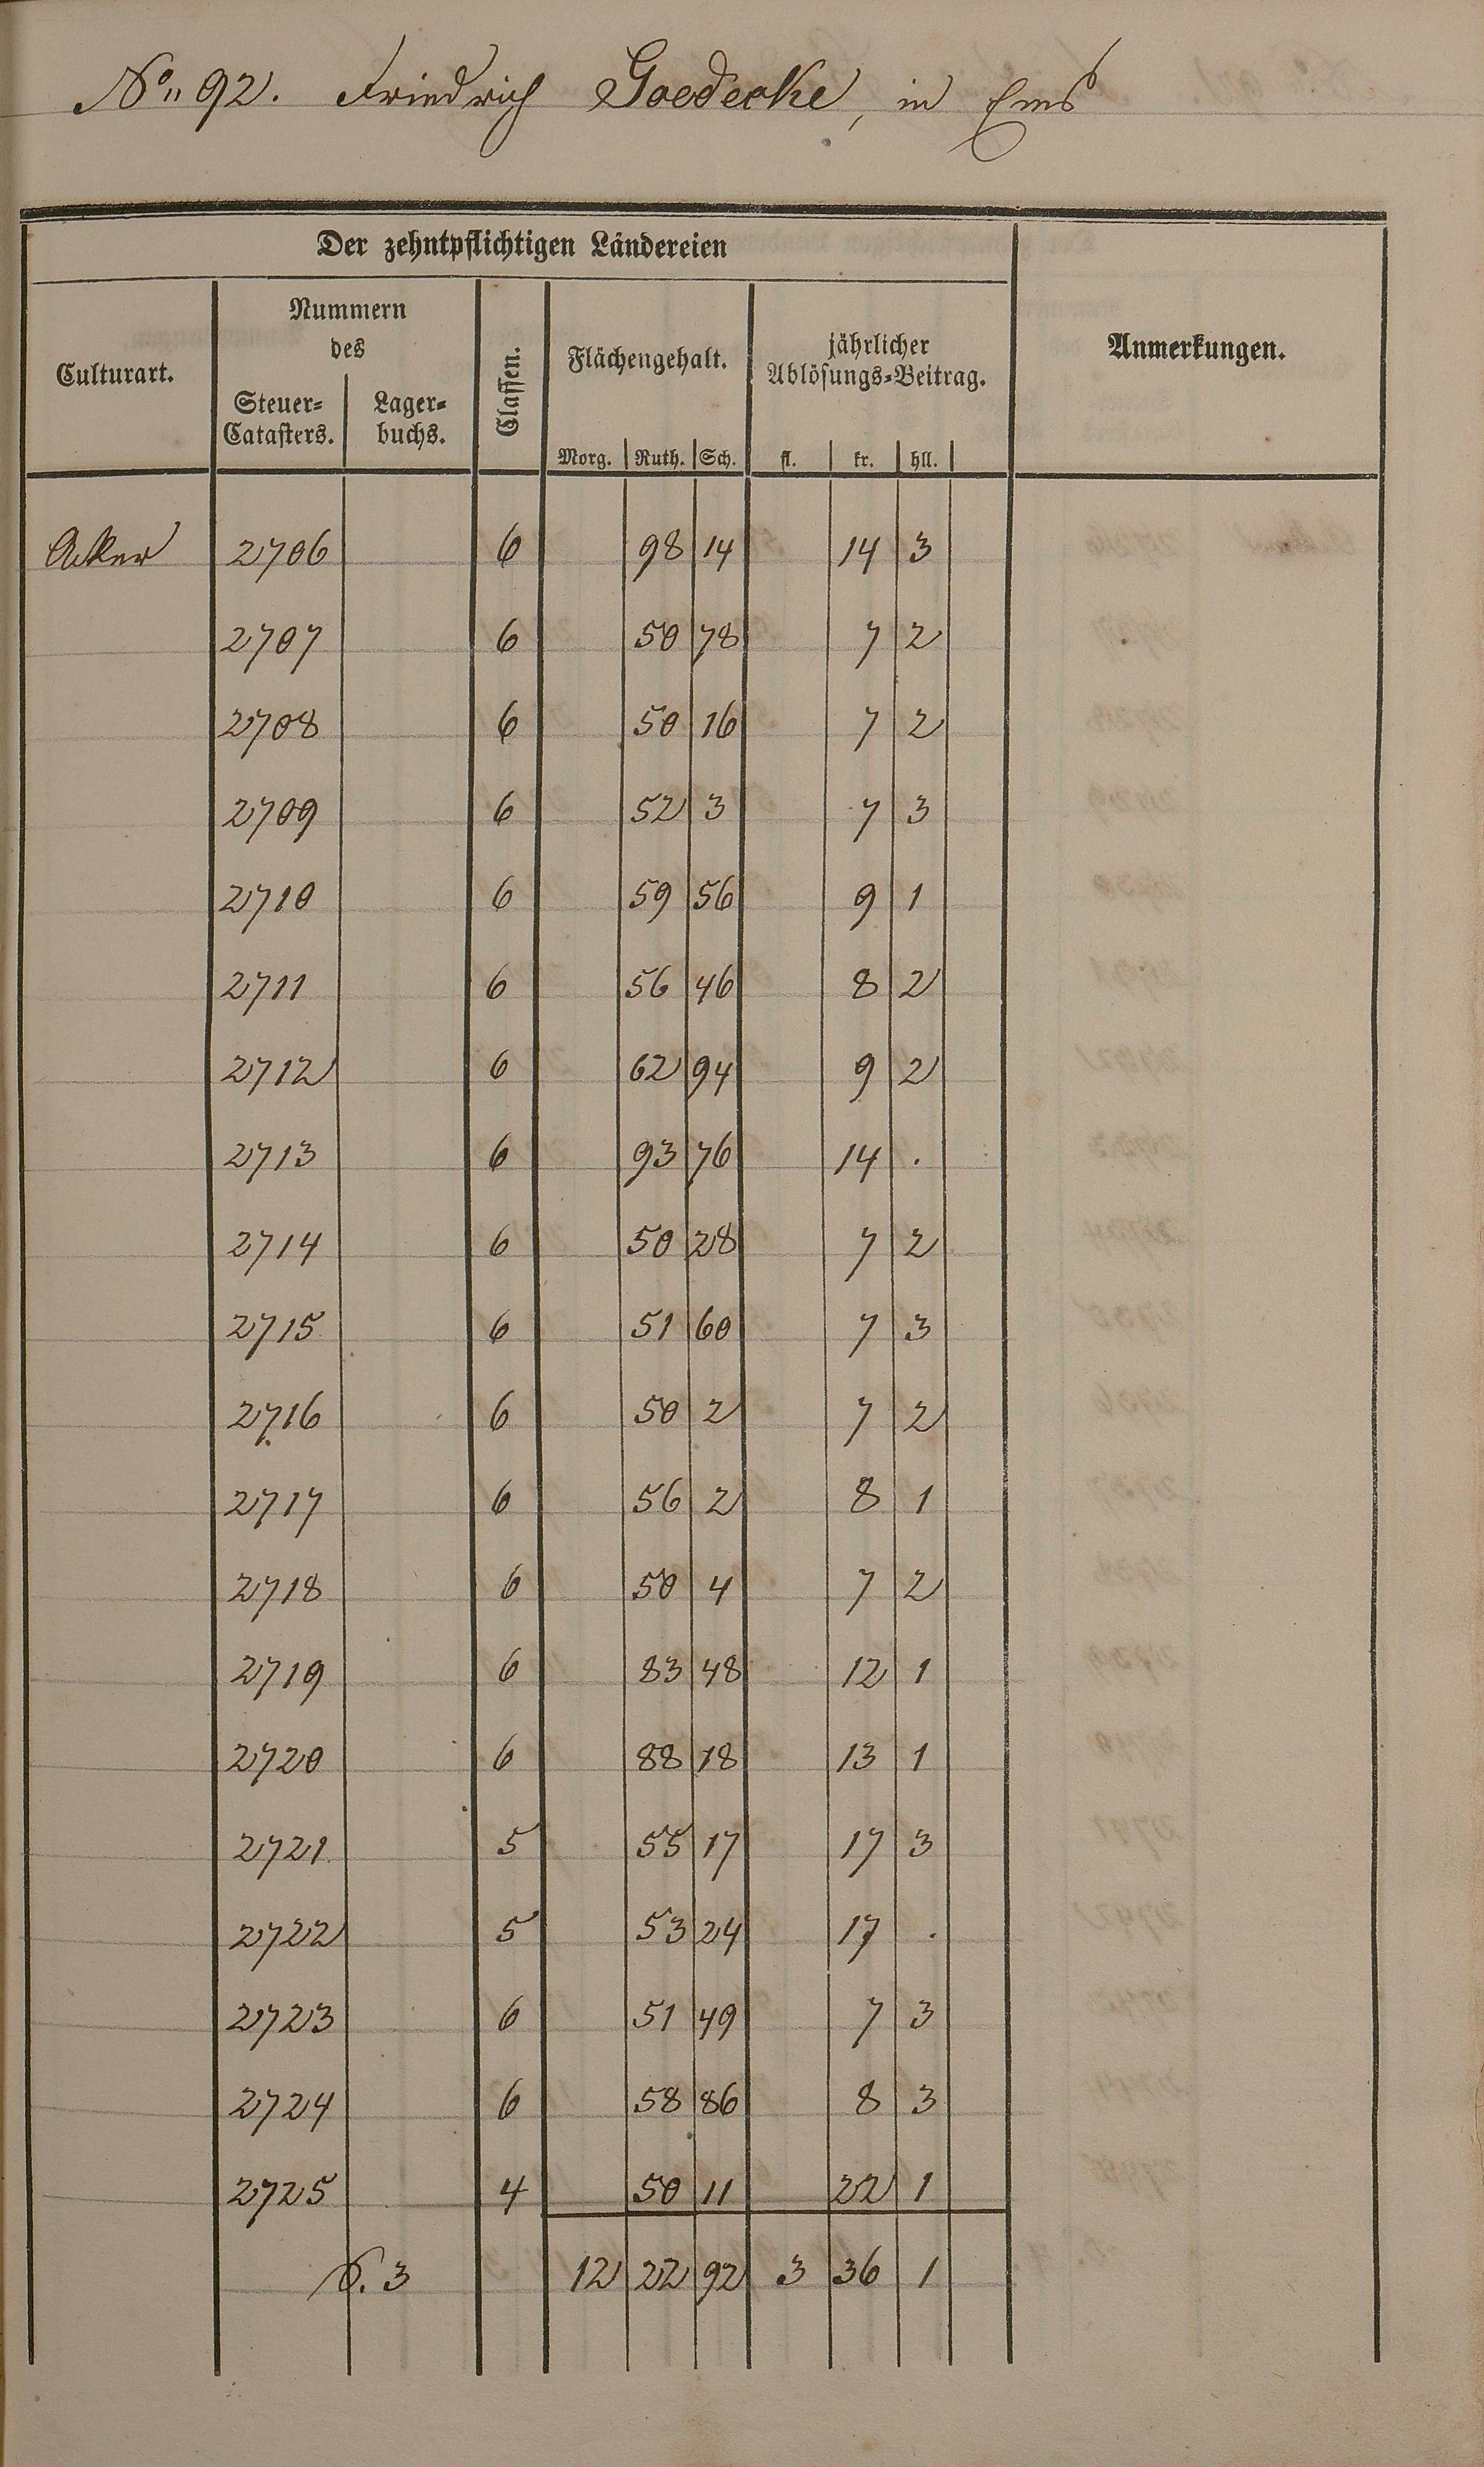 No 92. Friedrich Goedecke, in Ems
Der zehntpflichtigen Ländereien
Culturart.
Nummern
des
Steuer=
Catasters.
Lager=
buchs.
Classen.
Flächengehalt.
Morg. Ruth. Sch.
jährlicher
Ablösungs=Beitrag.
fl. kr. hll.
Anmerkungen.
Acker 2706 6 98 14 14 3
2707 6 50 78 7 2
2708 6 50 16 7 2
2709 6 52 3 7 3
2710 6 59 56 9 1
2711 6 56 46 8 2
2712 6 62 94 9 2
2713 6 93 76 14 .
2714 6 50 28 7 2
2715 6 51 60 7 3
2716 6 50 2 7 2
2717 6 56 2 8 1
2718 6 50 4 7 2
2719 6 83 48 12 1
2720 6 88 18 13 1
2721 5 55 17 17 3
2722 5 53 24 17 .
2723 6 51 49 7 3
2724 6 58 86 8 3
2725 4 50 11 22 1
S. 3 12 22 92 3 36 1